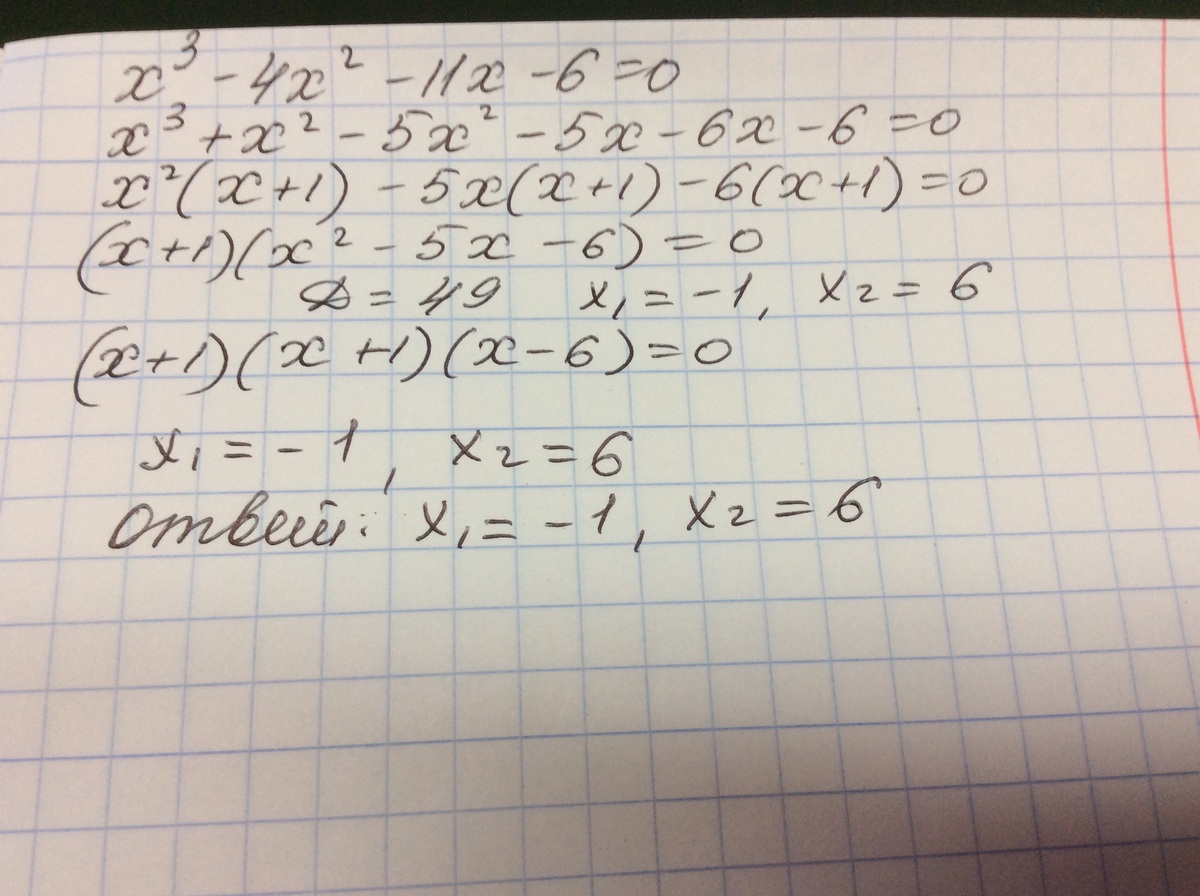 x³ - 4x² - 11x - 6 = 0
x³ + x² - 5x² - 5x - 6x - 6 = 0
x²(x+1) - 5x(x+1) - 6(x+1) = 0
(x+1)(x² - 5x - 6) = 0
D = 49 x₁ = -1, x₂ = 6
(x+1)(x+1)(x-6) = 0
x₁ = -1, x₂ = 6
Ответ: x₁ = -1, x₂ = 6